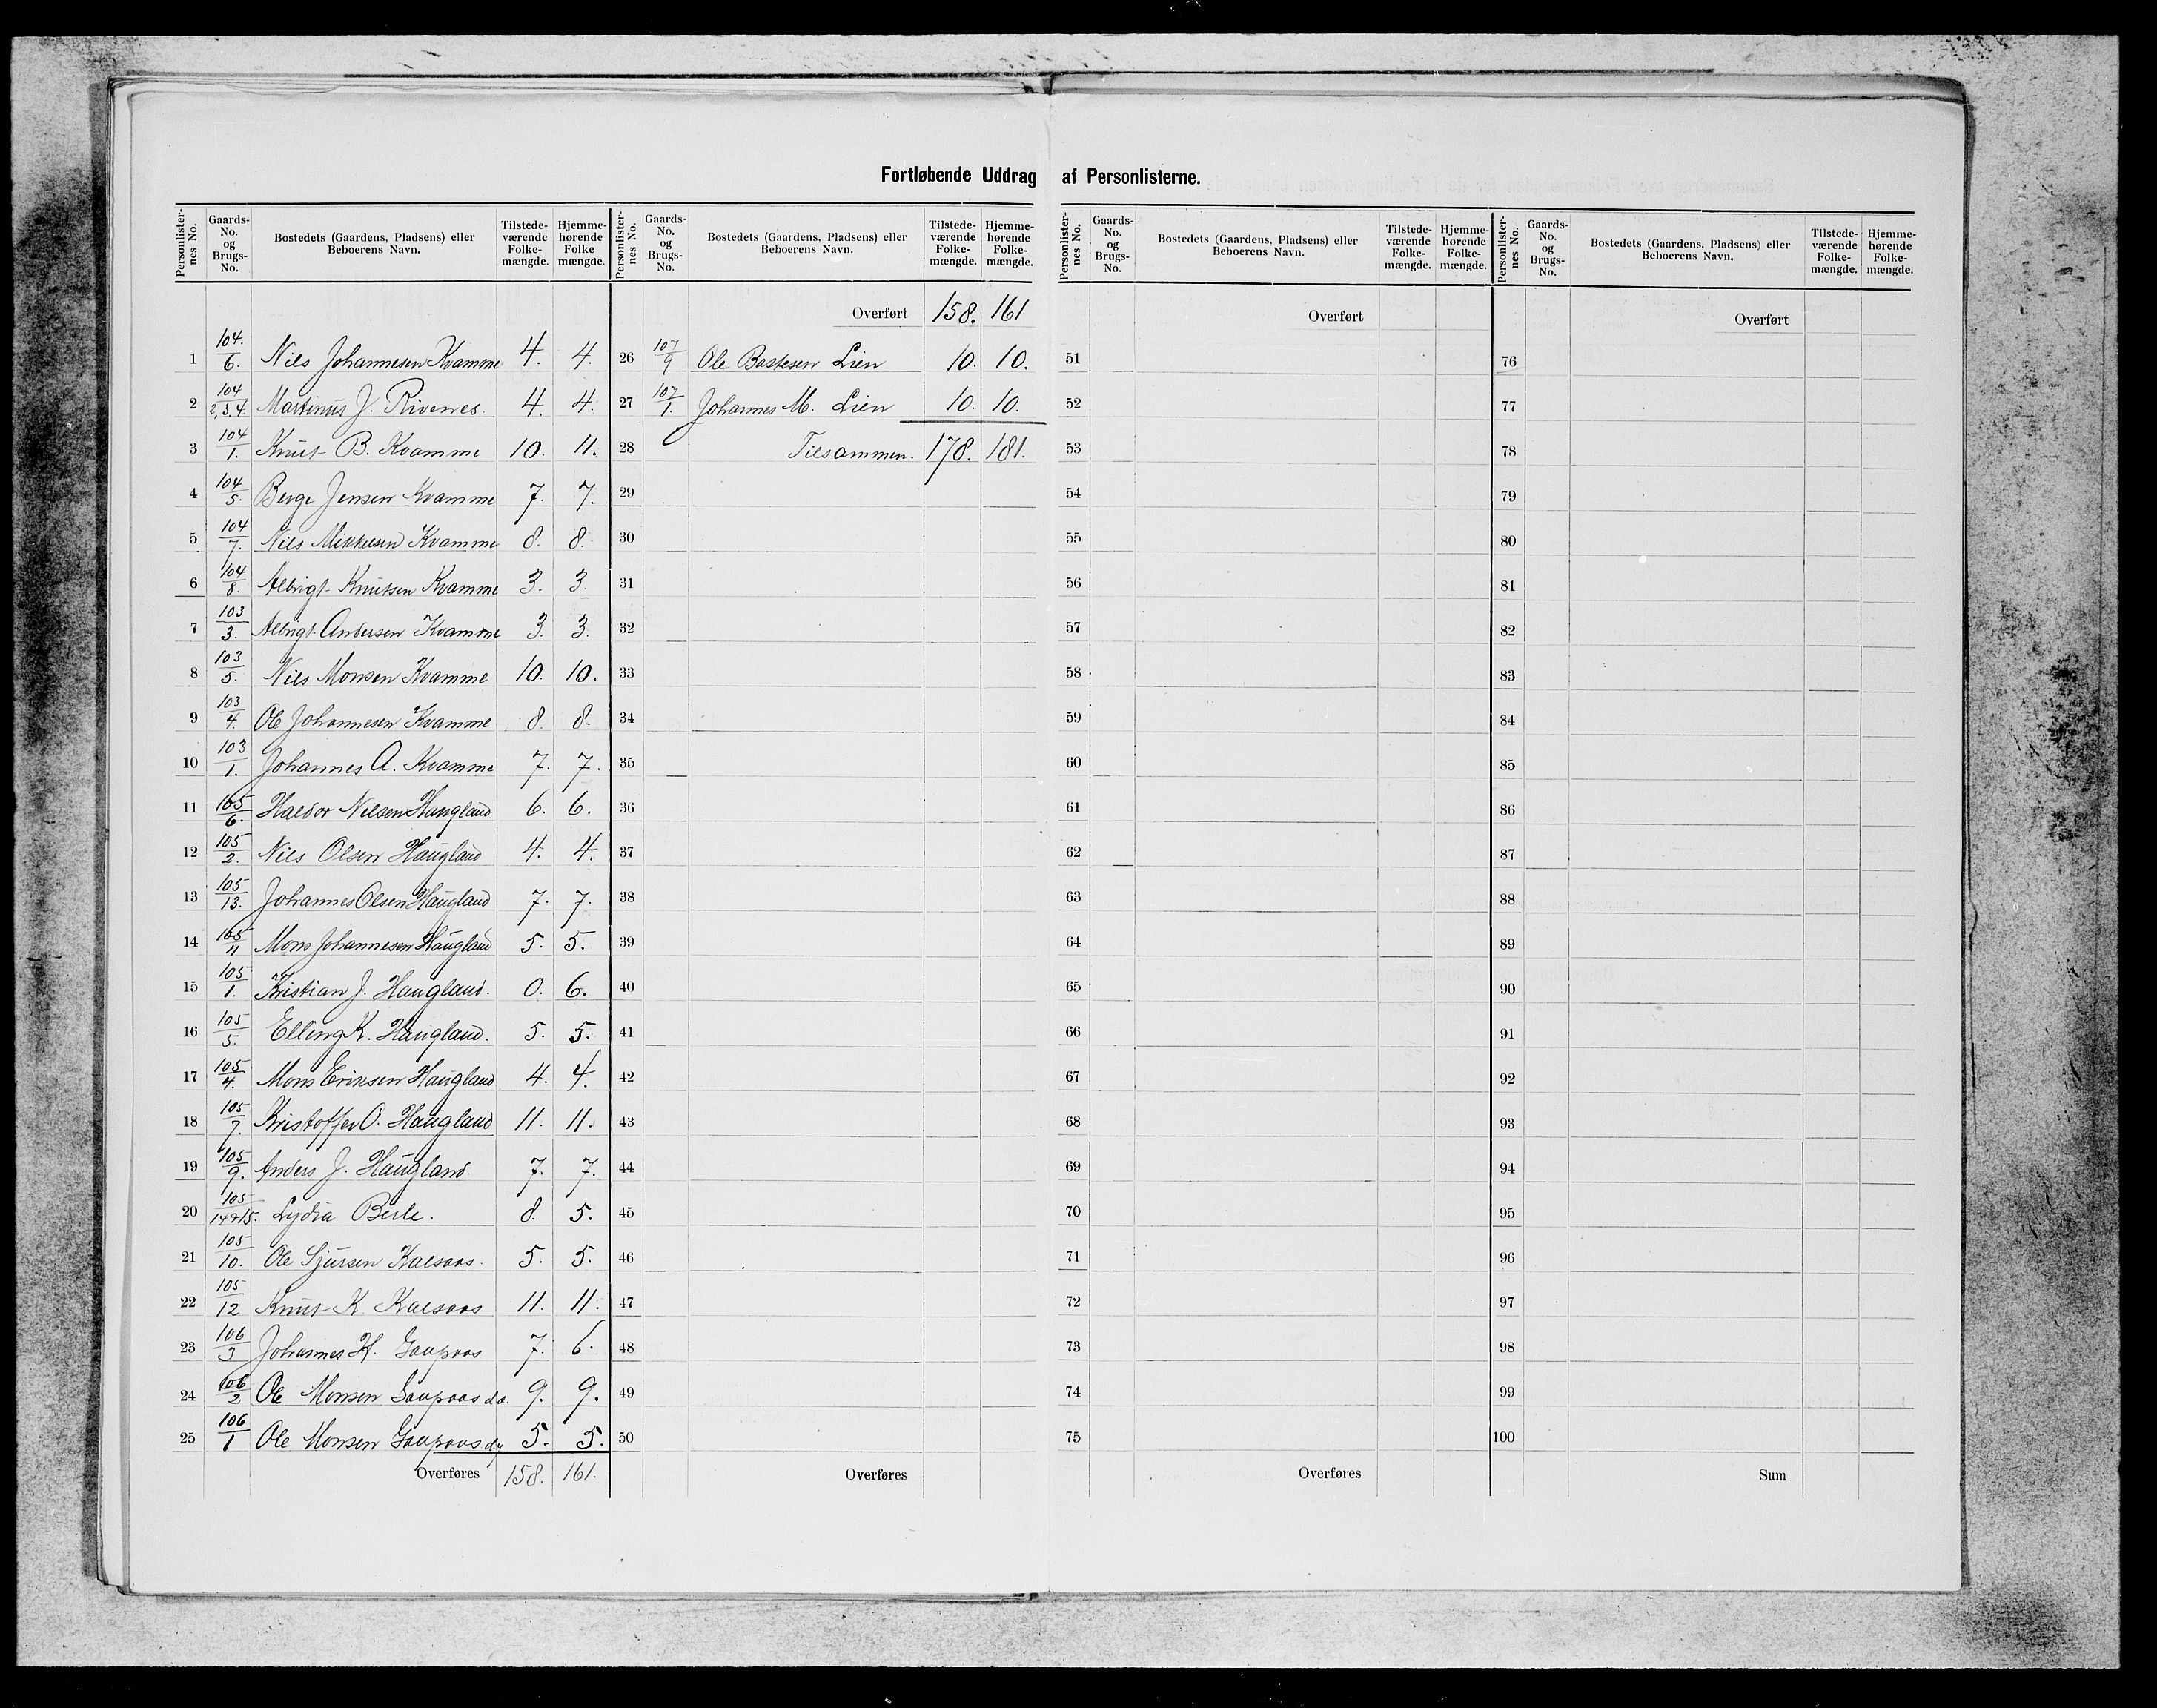 Fortløbende Uddrag af Personlisterne.
Personlister-nes No. | Gaards-No. og Brugs-No. | Bostedets (Gaardens, Pladsens) eller Beboerens Navn. | Tilstede-værende Folke-mængde. | Hjemme-hørende Folke mængde.
1 104./6. Nils Johannesen Kvamme 4. 4.
2 104/2,3,4. Martinus J. Rivenes. 4. 4.
3 104/1. Knut B. Kvamme 10. 11.
4 104/5. Berge Jensen Kvamme 7. 7.
5 104/7. Nils Mikkelsen Kvamme 8. 8.
6 104/8. Albrigt Knutsen Kvamme 3. 3.
7 103/3. Albrigt Andersen Kvamme 3. 3.
8 103/5. Nils Monsen Kvamme 10. 10.
9 103/4. Ole Johannesen Kvamme 8. 8.
10 103/1. Johannes A. Kvamme 7. 7.
11 105/6. Haldor Nilsen Haugland 6. 6.
12 105/2. Nils Olsen Haugland 4. 4.
13 105/13. Johannes Olsen Haugland 7. 7.
14 105/11 Mons Johannesen Haugland 5. 5.
15 105/1. Kristian J. Haugland. 0. 6.
16 105/5. Elling K. Haugland. 5. 5.
17 105/4. Mons Eriksen Haugland 4. 4.
18 105/7. Kristoffer O. Haugland 11. 11.
19 105/9. Anders J. Haugland. 7. 7.
20 105/14&15. Lydia Berle. 8. 5.
21 105/10. Ole Sjursen Kalsaas. 5. 5.
22 105/12 Knut K. Kalsaas 11. 11.
23 106/3 Johannes H. Gaupaas 7. 6.
24 106/2 Ole Monsen Gaupaas d.æ. 9. 9.
25 106/1 Ole Monsen Gaupaas d.y 5. 5.
Overføres 158. 161.
Personlister-nes No. | Gaards-No. og Brugs-No. | Bostedets (Gaardens, Pladsens) eller Beboerens Navn. | Tilstede-værende Folke-mængde. | Hjemme-hørende Folke-mængde.
Overført 158. 161
26 107/9 Ole Bastesen Lien 10. 10.
27 107/1. Johannes M. Lien 10. 10.
28 Tilsammen. 178. 181.
29
30
31
32
33
34
35
36
37
38
39
40
41
42
43
44
45
46
47
48
49
50
Overføres
Personlister-nes No. | Gaards-No. og Brugs-No. | Bostedets (Gaardens, Pladsens) eller Beboerens Navn. | Tilstede-værende Folke-mængde. | Hjemme-hørende Folke-mængde.
Overført
51
52
53
54
55
56
57
58
59
60
61
62
63
64
65
66
67
68
69
70
71
72
73
74
75
Overføres
Personlister-nes No. | Gaards-No. og Brugs-No. | Bostedets (Gaardens, Pladsens) eller Beboerens Navn. | Tilstede-værende Folke-mængde. | Hjemme-hørende Folke-mængde.
Overført
76
77
78
79
80
81
82
83
84
85
86
87
88
89
90
91
92
93
94
95
96
97
98
99
100
Sum